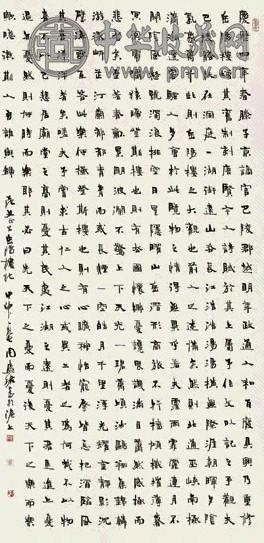 慶曆四年春滕子京謫守巴陵郡越明年政通人和百廢具興乃重修
岳陽樓增其舊制刻唐賢今人詩賦于其上屬予作文以記之予觀夫
巴陵勝狀在洞庭一湖銜遠山吞長江浩浩湯湯橫無際涯朝暉夕陰
氣象萬千此則岳陽樓之大觀也前人之述備矣然則北通巫峽南極
瀟湘遷客騷人多會於此覽物之情得無異乎若夫霪雨霏霏連月不
開陰風怒號濁浪排空日星隱曜山岳潛形商旅不行檣傾楫摧薄暮
冥冥虎嘯猿啼登斯樓也則有去國懷鄉憂讒畏譏滿目蕭然感極而
悲者矣至若春和景明波瀾不驚上下天光一碧萬頃沙鷗翔集錦鱗
游泳岸芷汀蘭郁郁青青而或長煙一空皓月千里浮光躍金靜影沉
璧漁歌互答此樂何極登斯樓也則有心曠神怡寵辱皆忘把酒臨風
其喜洋洋者矣嗟夫予嘗求古仁人之心或異二者之爲何哉不以物
喜不以己悲居廟堂之高則憂其民處江湖之遠則憂其君是進亦憂
退亦憂然則何時而樂耶其必曰先天下之憂而憂後天下之樂而樂
歟噫微斯人吾誰與歸 范文正公岳陽樓記 甲申之夏 周慧珺書於滬上
中华收藏网